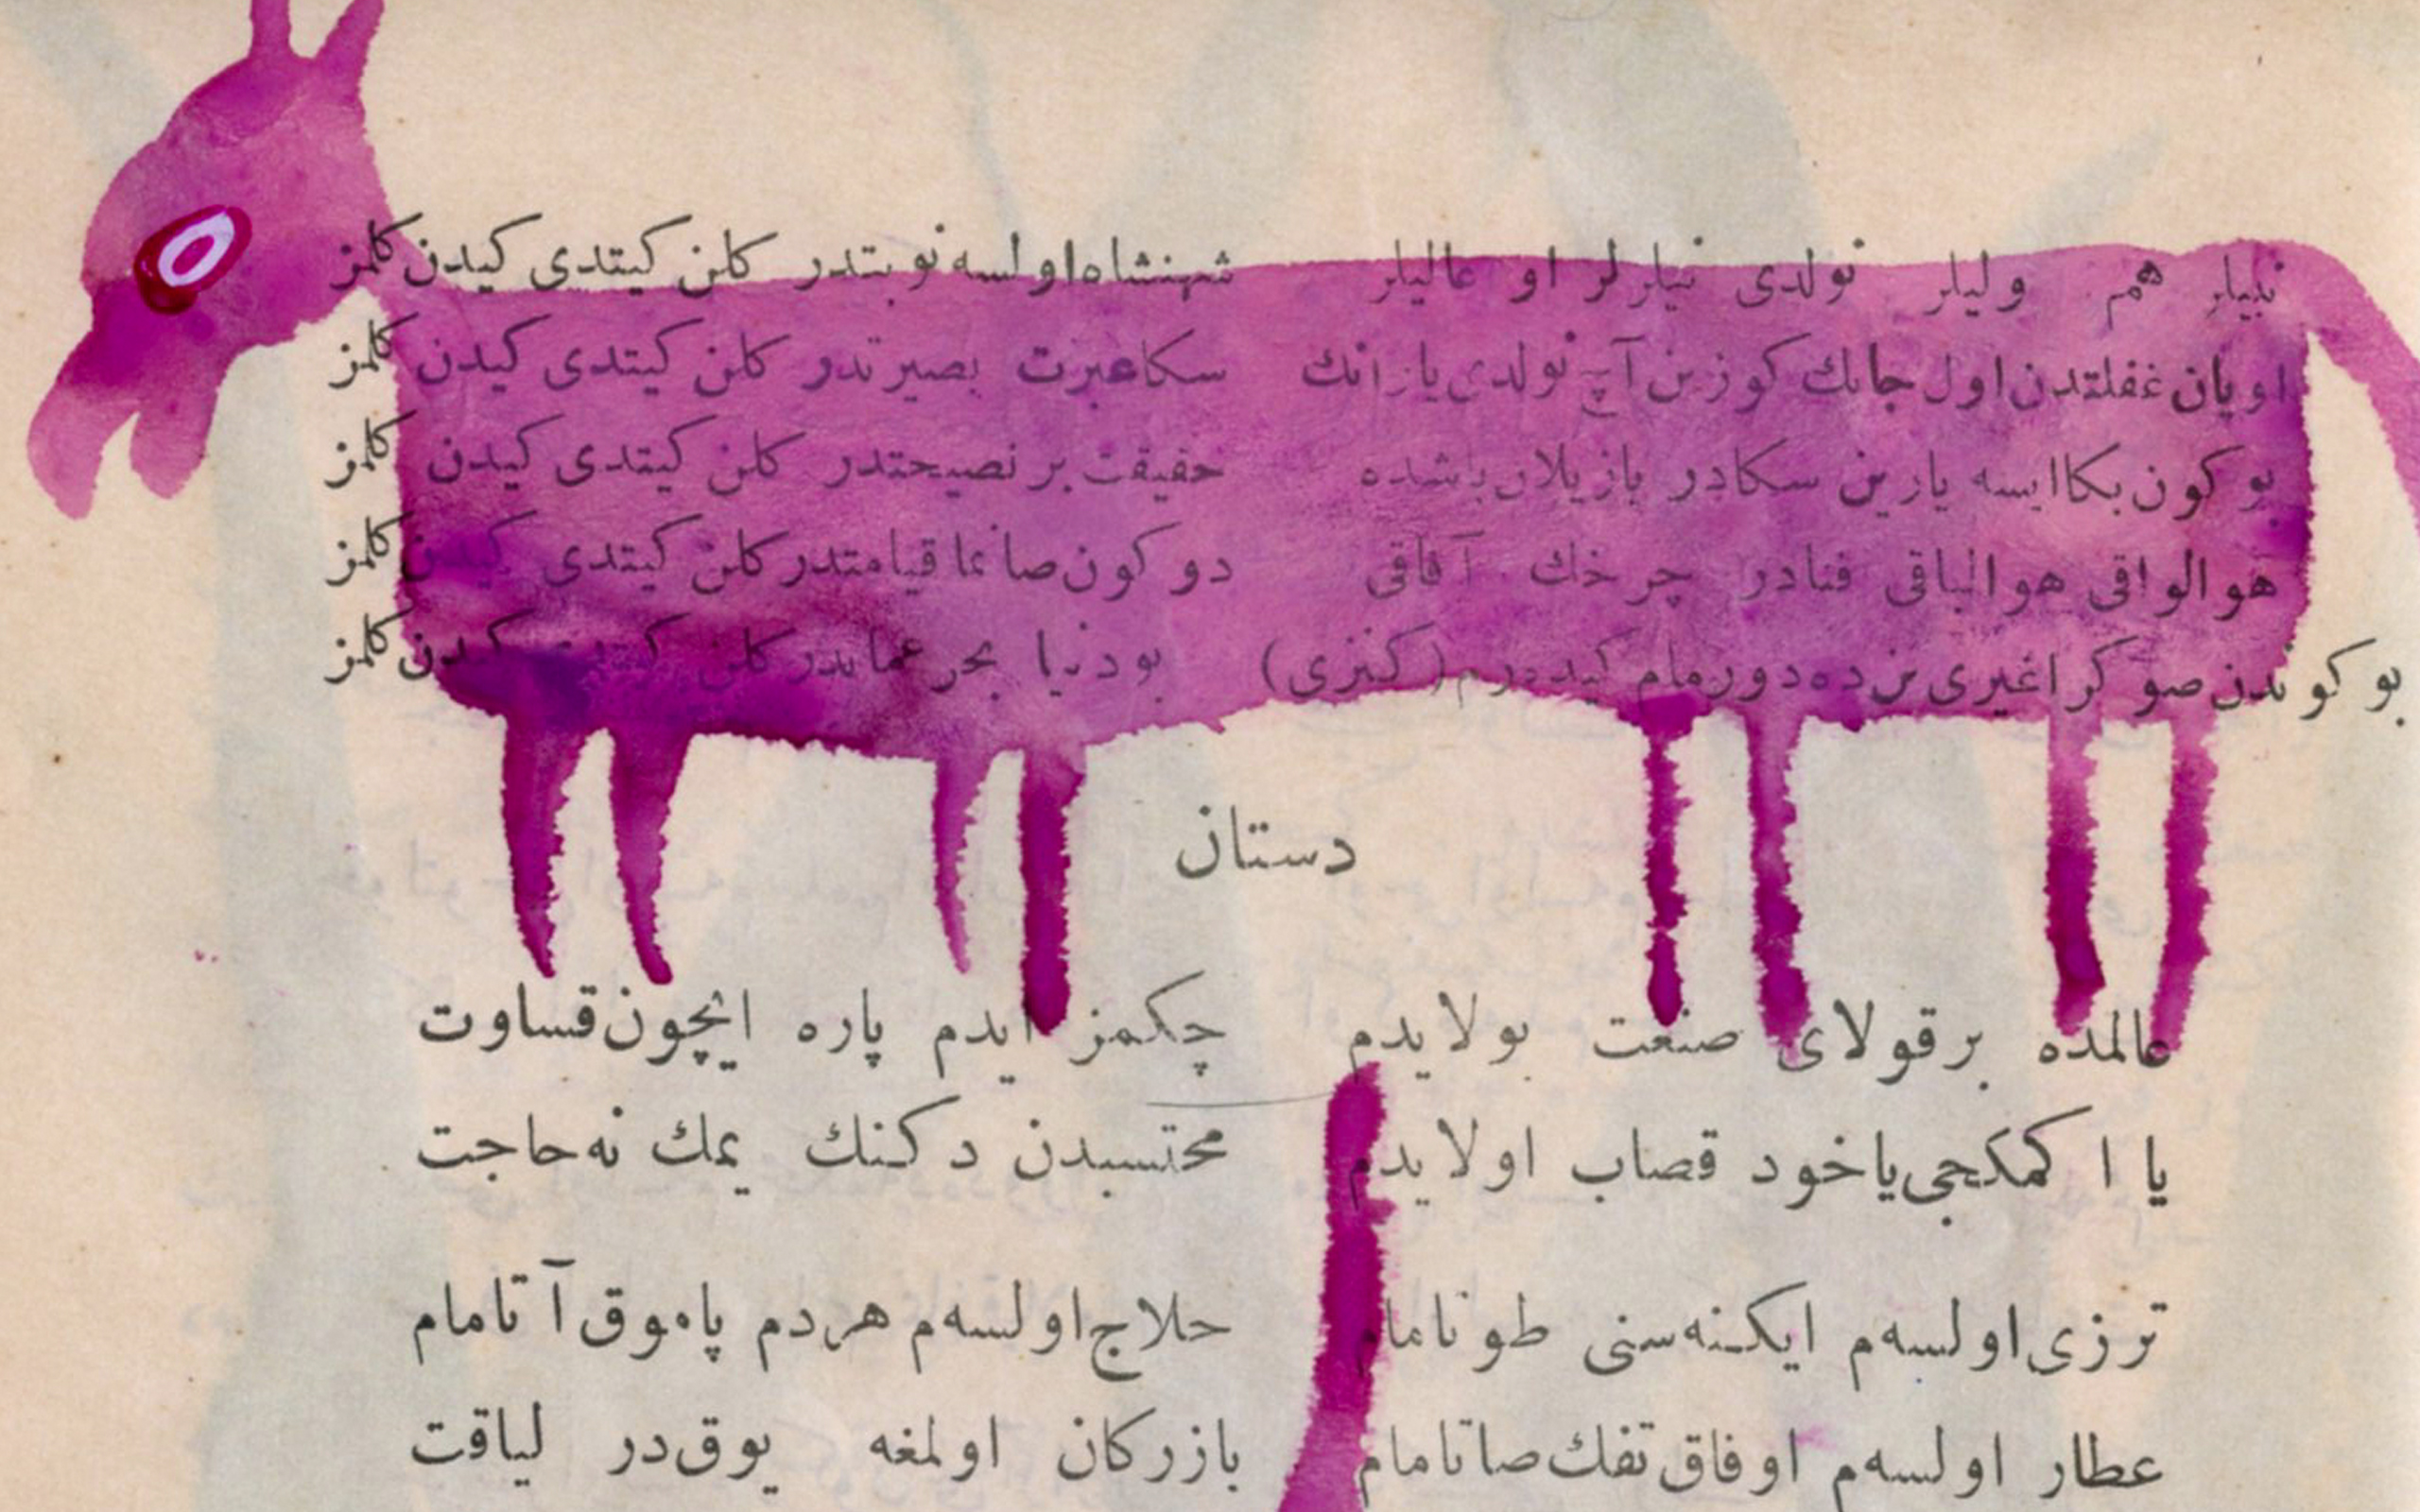 نبیلر هم ولیلر نولدی نیلرلر او عالیلر شهنشاه اولسه نوبتدر كلن كیتدی كیدن كلمز
اویان غفلتدن اول جانك كوزین آچ نولدی یارانك سكا عبرت بصیرتدر كلن كیتدی كیدن كلمز
بو كون بكا ایسه یارین سكادر یازیلان باشده حقیقت بر نصیحتدر كلن كیتدی كیدن كلمز
هو الواقی هو الباقی فنادر چرخك آفاقی دو كون صانما قیامتدر كلن كیتدی كیدن كلمز
بو كوندن صوكرا غیری بن ده دورمام كیدەرم (كنزی) بو دنیا بحر عماندر كلن كیتدی كیدن كلمز
دستان
عالمده بر قولای صنعت بولایدم چكمز ایدم پاره ایچون قساوت
یا اكمكجی یاخود قصاب اولایدم محتسبدن دكنك یمك نه حاجت
ترزی اولسەم ایكنەسنی طوتامام حلاج اولسەم هردم پاموق آتامام
عطار اولسەم اوفاق تفك صاتامام بازركان اولمغه یوقدر لیاقت